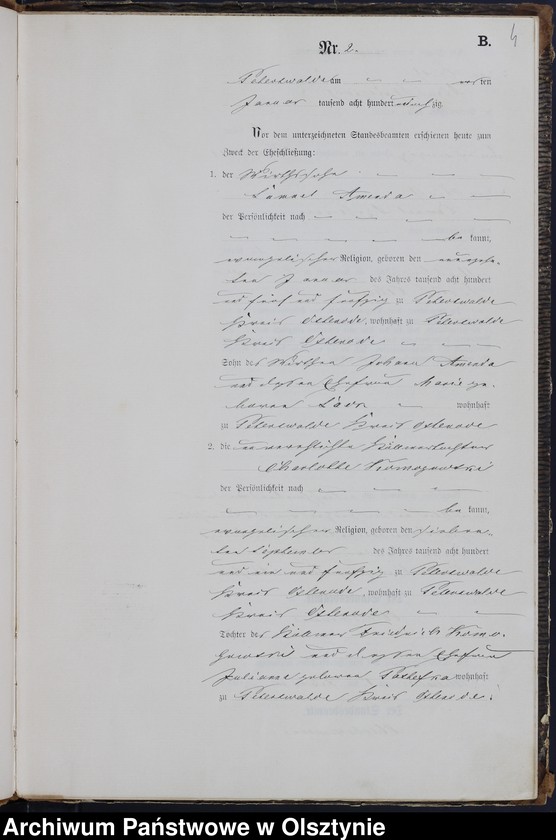 Nr. 2.
B.
4
Peterswalde am
Januar tausend acht hundert achtzig
Vor dem unterzeichneten Standesbeamten erschienen heute zum
Zweck der Eheschließung:
1. der Wirthssohn
Samuel Amenda
der Persönlichkeit nach
be kannt,
evangelischer Religion, geboren den
ten Januar des Jahres tausend acht hundert
und fünf und fünfzig zu Peterswalde
Kreis Osterode, wohnhaft zu Peterswalde
Kreis Osterode
Sohn des Wirthen Johann Amenda
und dessen Ehefrau Marie ge-
borene wohnhaft
zu Peterswalde Kreis Osterode
2. die unverehelichte Köllmertochter
Charlotte
der Persönlichkeit nach
be kannt,
evangelischer Religion, geboren den sieben-
ten September des Jahres tausend acht hundert
und ein und fünfzig zu Peterswalde
Kreis Osterode, wohnhaft zu Peterswalde
Kreis Osterode
Tochter des Köllmers Friedrich
und dessen Ehefrau
Juliane geborene wohnhaft
zu Peterswalde Kreis Osterode.
Archiwum Państwowe w Olsztynie